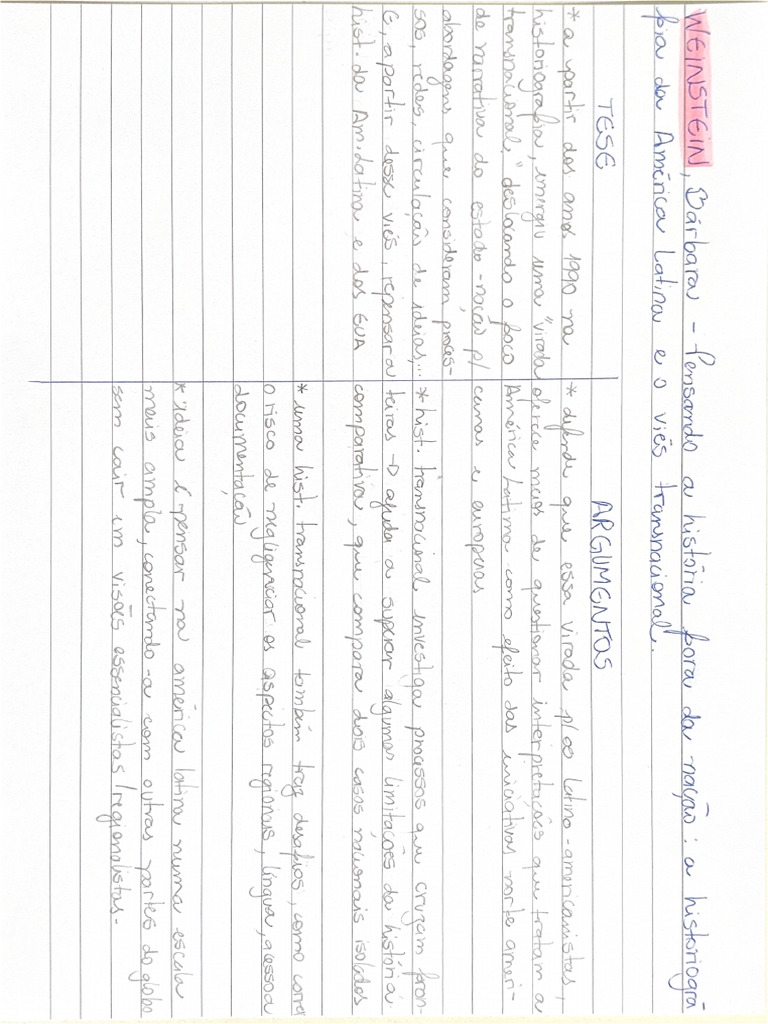 WEINSTEIN, Bárbara - Pensando a história fora da nação: a historiogra
fia da América Latina e o viés transnacional.
TESE
* a partir dos anos 1990 na
historiografia, emergiu uma "virada
transnacional," deslocando o foco
de narrativa do estado-nação p/
abordagens que consideram proces-
sos, redes, circulação de ideias,...
E, a partir desse viés, repensar a
hist. da Am. Latina e dos EUA
ARGUMENTOS
* defende que essa virada p/ os latino-americanistas,
oferece meios de questionar interpretações que tratam a
América Latina como efeito das iniciativas norte ameri-
canas e europeias
* hist. transnacional investiga processos que cruzam fron-
teiras → ajuda a superar algumas limitações da história
comparativa, que compara dois casos nacionais isolados
* uma hist. transnacional também traz desafios, como correr
o risco de negligenciar os aspectos regionais, língua, acesso a
documentação
* ideia é pensar na américa latina numa escala
mais ampla, conectando-a com outras partes do globo
sem cair em visões essencialistas/regionalistas.